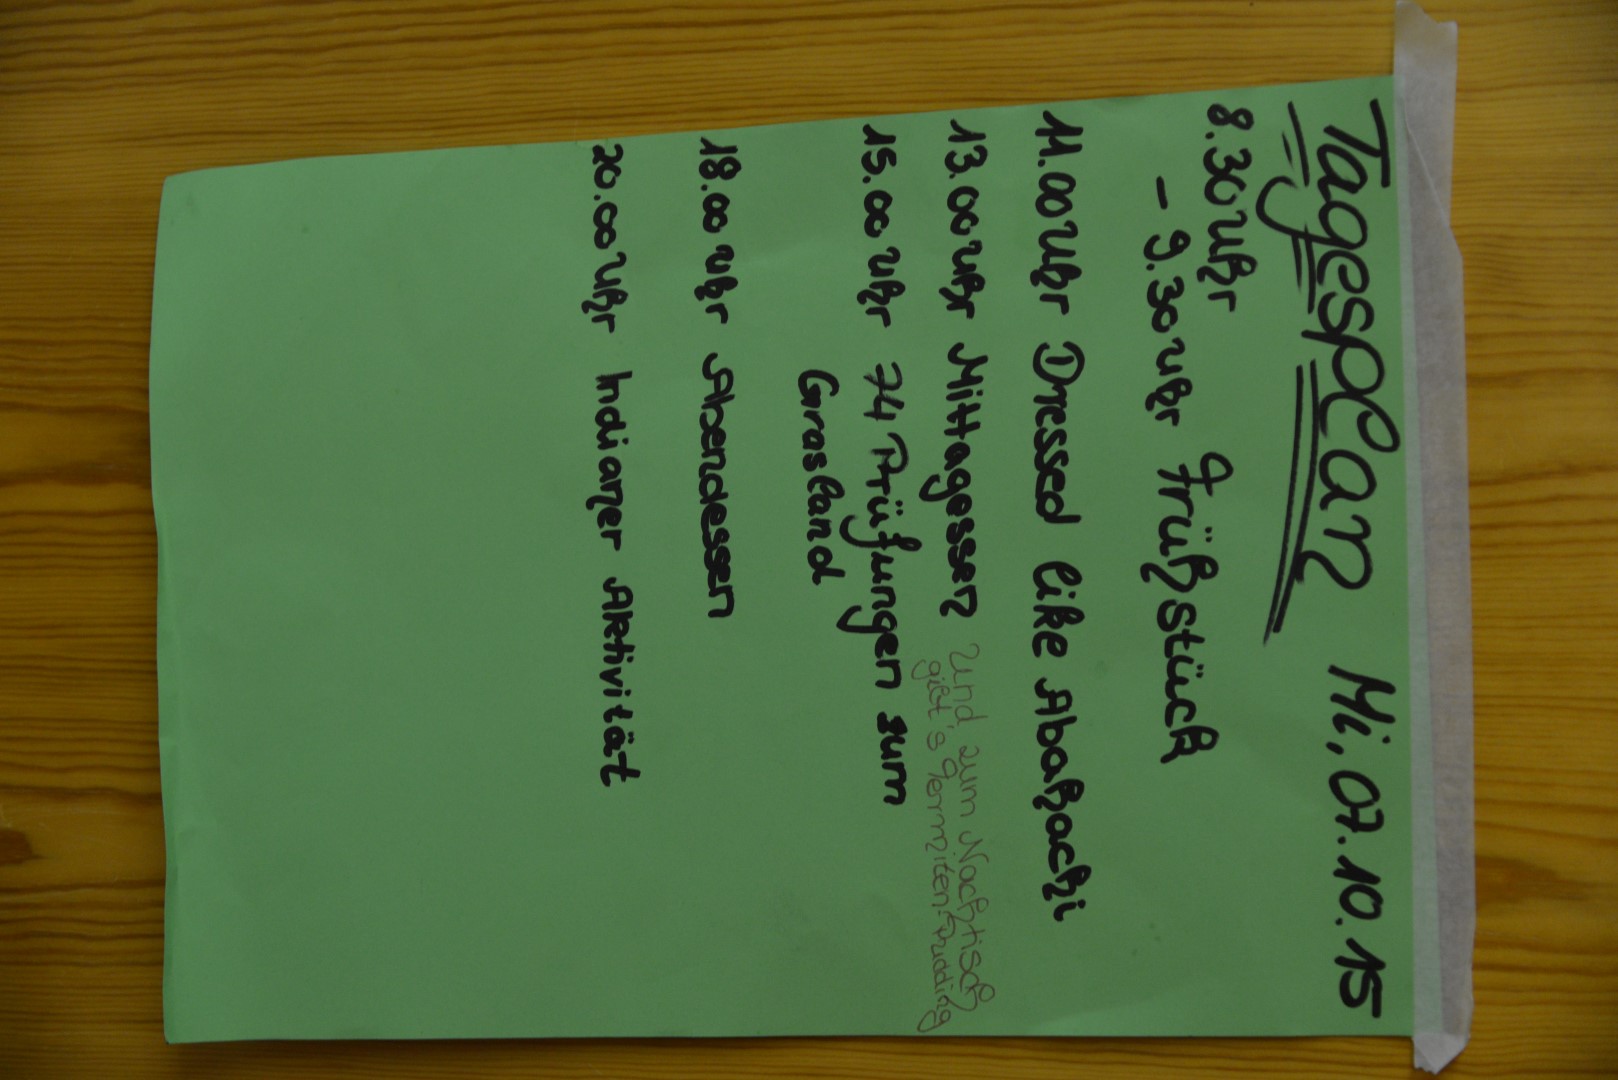 Tagesplan Mi, 07.10.15
8.30 Uhr
- 9.30 Uhr Frühstück
11.00 Uhr Dressed like Abahachi
13.00 Uhr Mittagessen und zum Nachtisch
gibt's Termiten-Pudding
15.00 Uhr 74 Prüfungen zum
Grasland
18.00 Uhr Abendessen
20.00 Uhr Indianer Aktivität